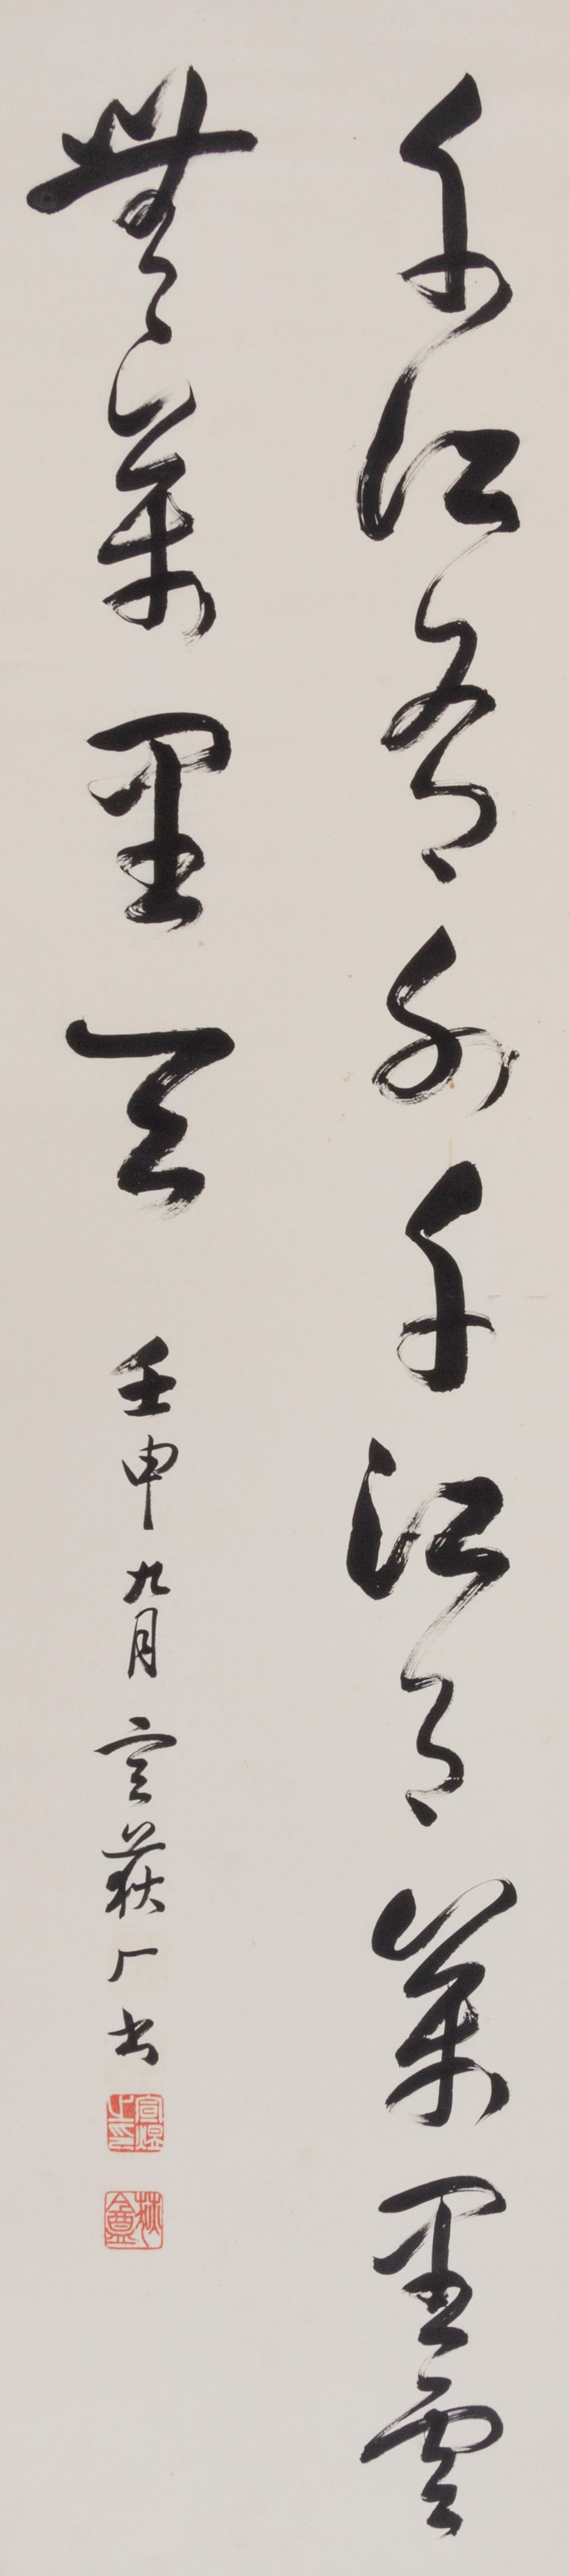 千江有水千江月萬里雲
無萬里天
壬申九月 宣荻厂書
荻盦